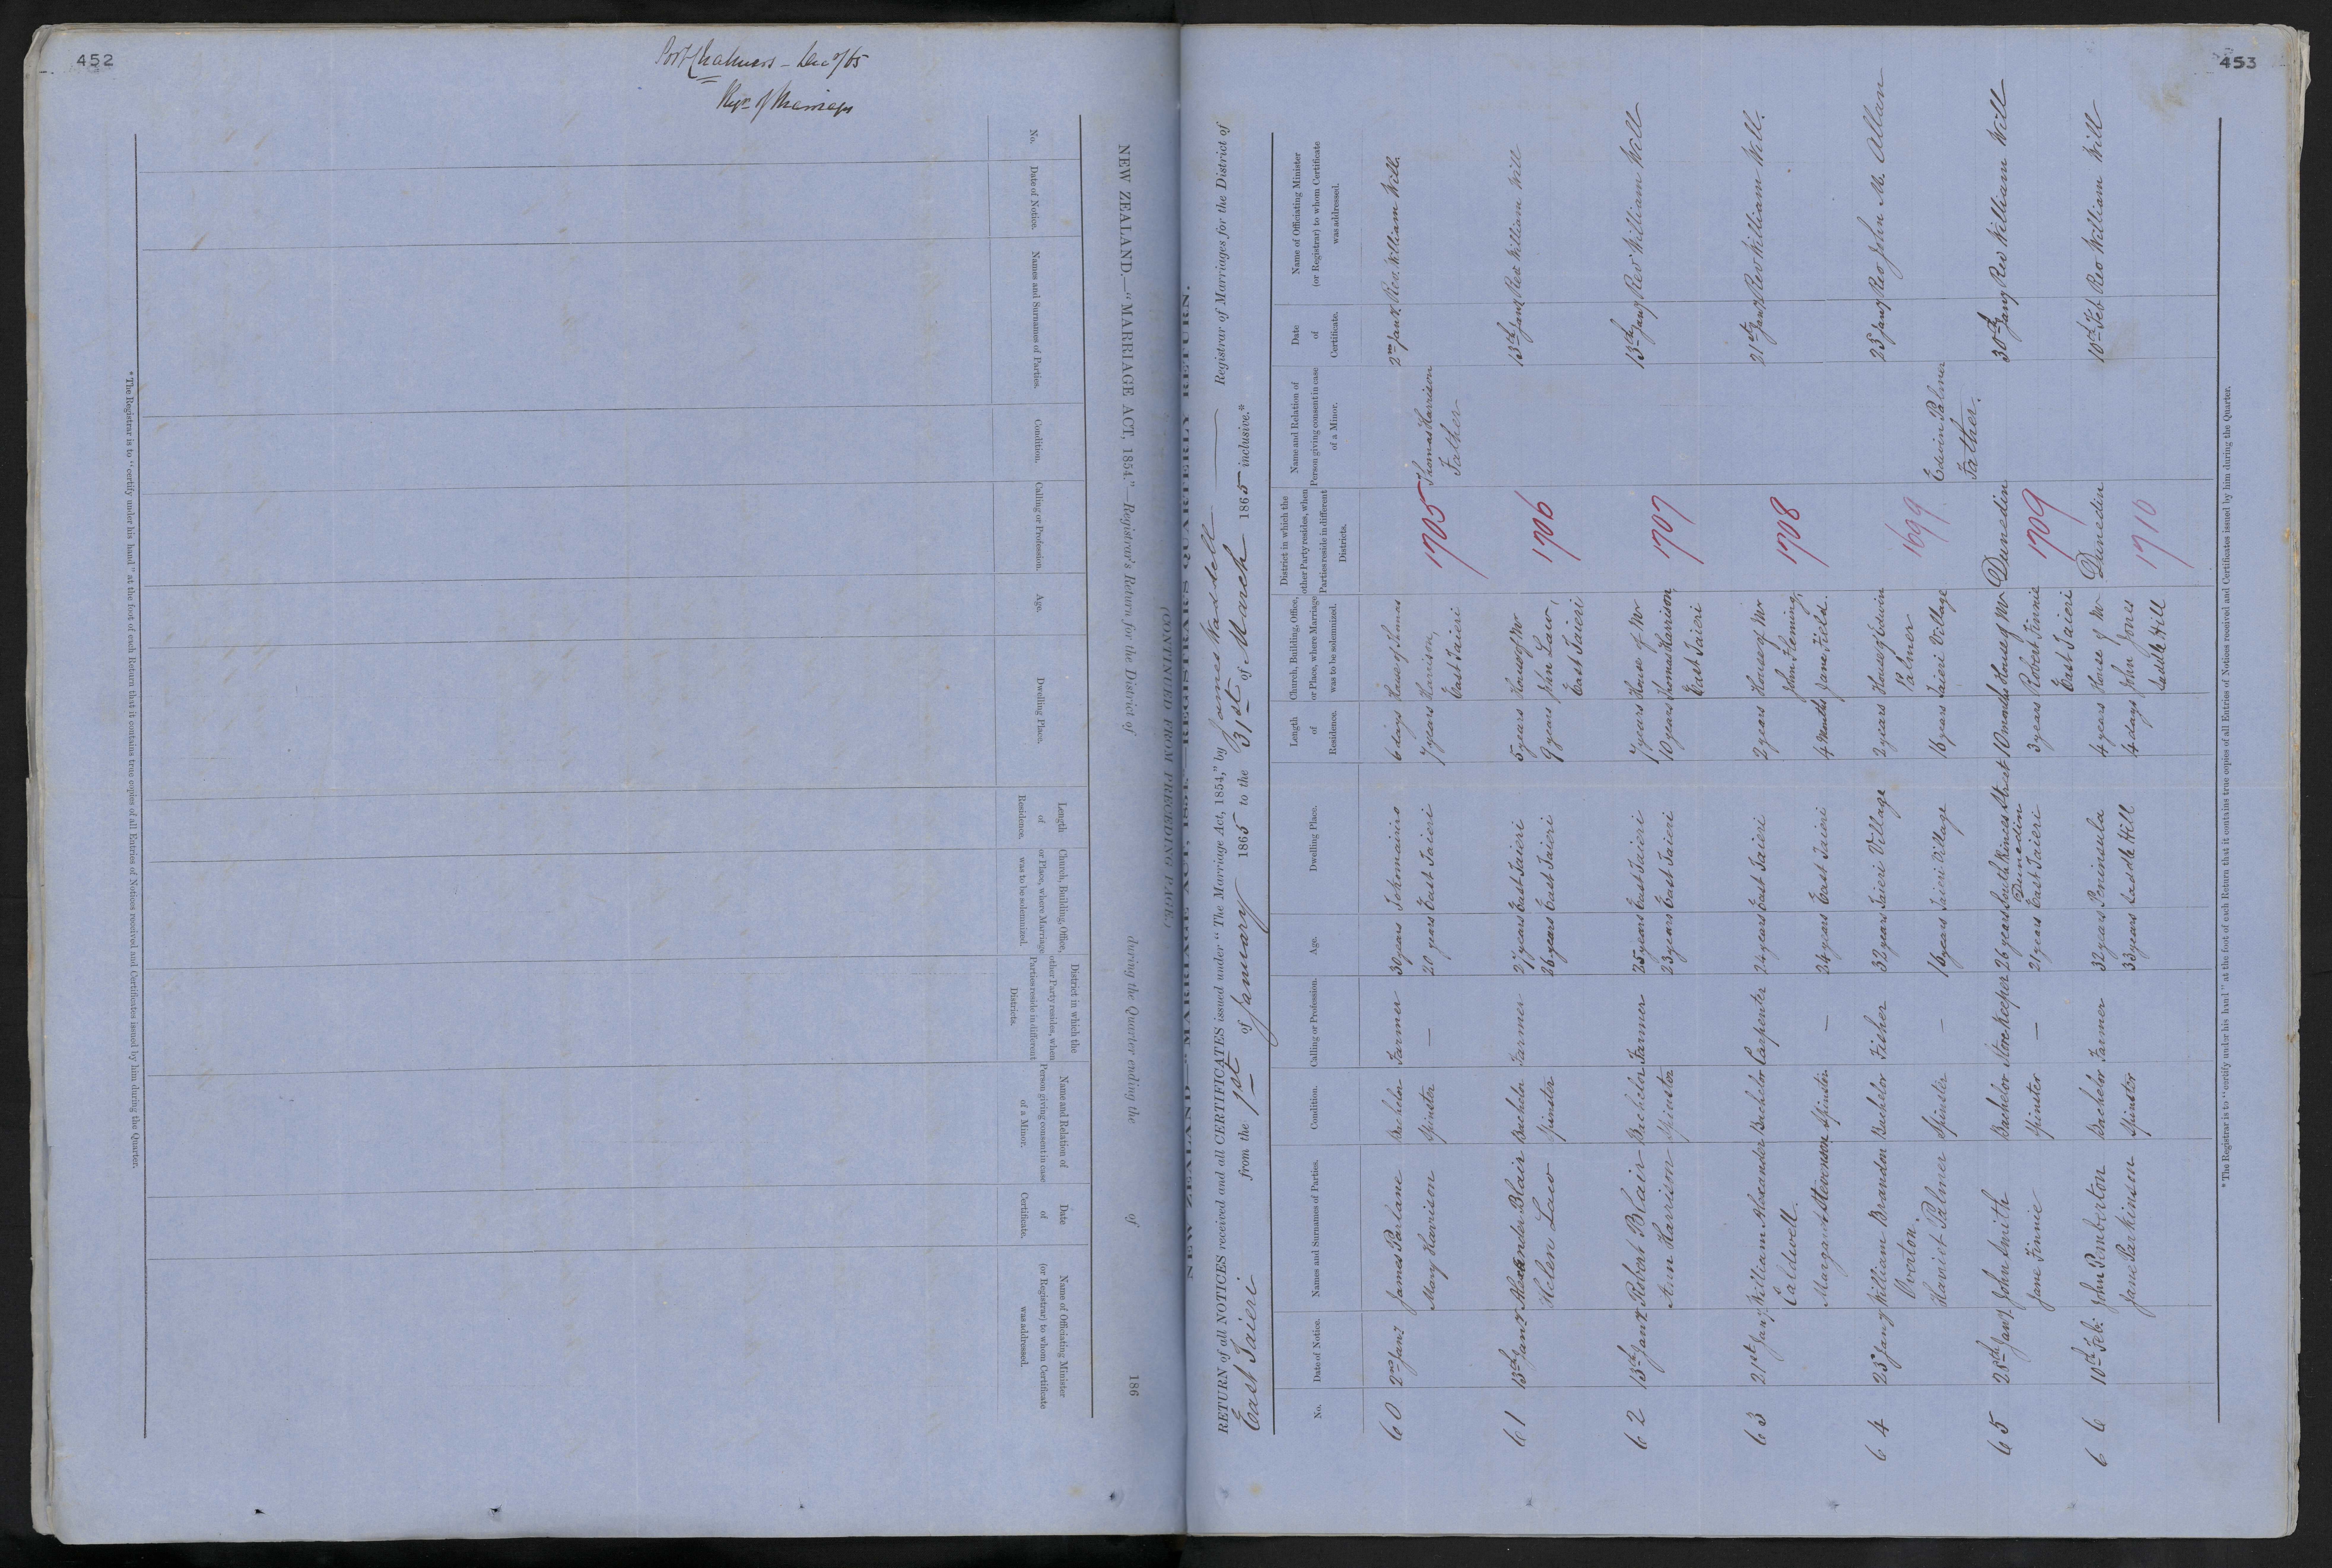 452
Port Chalmers - Dec /65
Regr. of Marriages
NEW ZEALAND.—"MARRIAGE ACT, 1854."—Registrar's Return for the District of during the Quarter ending the of 186
No.
Date of Notice.
Names and Surnames of Parties.
Condition.
Calling or Profession.
Age.
Dwelling Place.
Length
of
Residence.
Church, Building, Office,
or Place, where Marriage
was to be solemnized.
District in which the
other Party resides, when
Parties reside in different
Districts.
Name and Relation of
Person giving consent in case
of a Minor.
Date
of
Certificate.
Name of Officiating Minister
(or Registrar) to whom Certificate
was addressed.
*The Registrar is to "certify under his hand" at the foot of each Return that it contains true copies of all Entries of Notices received and Certificates issued by him during the Quarter.
(CONTINUED FROM PRECEDING PAGE.)
453
NEW ZEALAND—"MARRIAGE ACT, 1854,"—REGISTRAR'S QUARTERLY RETURN.
RETURN of all NOTICES received and all CERTIFICATES issued under "The Marriage Act, 1854," by James Waddell Registrar of Marriages for the District of
East Taieri from the 1st of January 1865 to the 31st of March 1865 inclusive.*
No.
Date of Notice.
Names and Surnames of Parties.
Condition.
Calling or Profession.
Age.
Dwelling Place.
Length
of
Residence.
Church, Building, Office,
or Place, where Marriage
was to be solemnized.
District in which the
other Party resides, when
Parties reside in different
Districts.
Name and Relation of
Person giving consent in case
of a Minor.
Date
of
Certificate.
Name of Officiating Minister
(or Registrar) to whom Certificate
was addressed.
60 2nd Jany James Parlane Bachelor Farmer 30 years Tokomairiro 6 days House of Thomas 2nd Jany. Rev. William Will.
Mary Harrison Spinster — 20 years East Taieri 7 years Harrison, 1705 Thomas Harrison
East Taieri Father
61 13th Jany Alexander Blair Bachelor Farmer 27 years East Taieri 5 years House of Mr 13th Jany Rev William Will
Helen Law Spinster 26 years East Taieri 9 years John Law, 1706
East Taieri
62 13th Jany Bachelor Farmer 25 years East Taieri 7 years House of Mr 13th Jany Rev William Will
Ann Harrison Spinster 23 years East Taieri 10 years Thomas Harrison 1707
East Taieri
63 21st Jany. William Alexander Bachelor Carpenter 24 years East Taieri 2 years House of Mr 21st Jany Rev William Will.
Caldwell. John Fleming, 1708
Margaret Stevenson Spinster — 24 years East Taieri 4 Months Jane Field.
64 23d Jany William Brandon Bachelor Fisher 32 years Taieri Village 2 years House of Edwin 23d Jany Rev John M. Allan
Overton. Palmer 1699
Harriet Palmer Spinster — 16 years Taieri Village 16 years Taieri Village Edwin Palmer
Father.
65 28th Jany. John Smith Bachelor Storekeeper 26 years South Princes Street 10 months House of Mr Dunedin 30th Jany Rev William Will
Dunedin
Jane Finnie Spinster — 21 years East Taieri 3 years Robert Finnie 1709
East Taieri
66 10th Feb. John Pemberton Bachelor Farmer 32 years Peninsula 4 years House of Mr Dunedin 10th Feb Rev William Will
Jane Parkinson Spinster 33 years Saddle Hill 4 days John Jones 1710
Saddle Hill
*The Registrar is to "certify under his hand" at the foot of each Return that it contains true copies of all Entries of Notices received and Certificates issued by him during the Quarter.